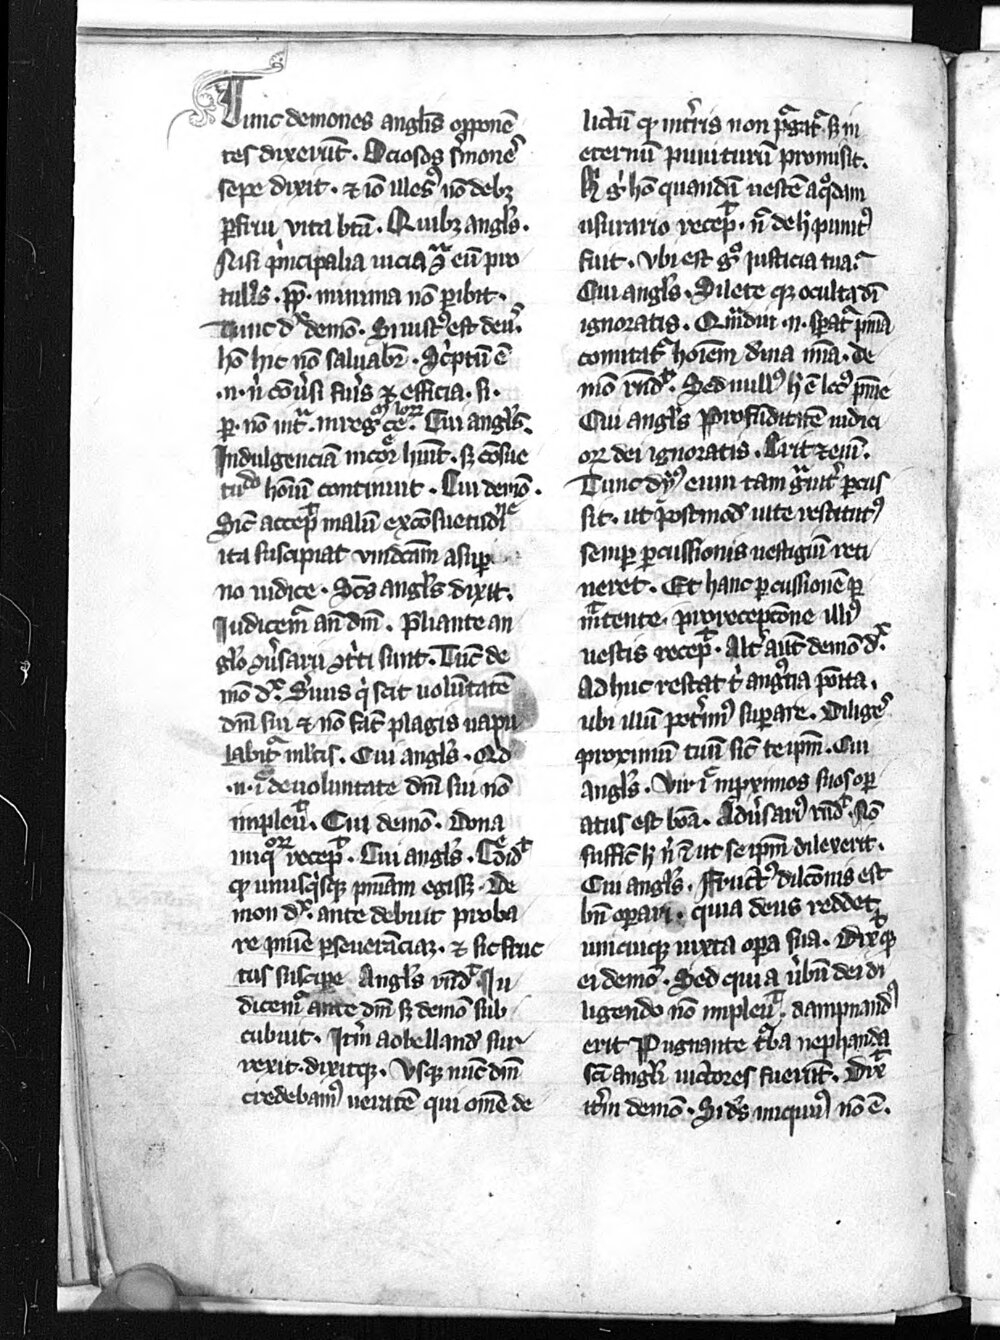 Tunc demones anglis opponē
tes dixerūt. Ociosos s̄mones
sepe dixit. ⁊ iō illesꝰ nō debꝫ
ꝑfrui vita btā. Quibꝫ angls.
Nisi p̍ncipalia uicia ꝯᵃ eū pro
tul̍is. ꝓp̄. minima nō ꝑibit.
Tunc dʳ demō. Si iustꝰ est deus.
hō hic nō saluabr̄. Sc̍ptū ē
.n. n̍ cōu̍si fu̍is ⁊ efficia. si.
ꝑ. nō int̍. in regᵒ celoꝝ. Cui angls.
Indulgenciā in corᵉ hūit. sꝫ cōsue
tudo hoīum continuit. Cui demō.
Sic̄ accepᵗ malū ex cōsuetudīe
ita suscipiat vindcām a suꝑ
no iudice. Scs angls dixit.
Iudicemᵘʳ an̄ dm̄. Pliante an
glo ꝯu̍sarii ꝯt̍ti sunt. Tūc de
mō dʳ. S̍uus q̍ scit uolūtatē
dm̄ sui ⁊ nō fac̄ plagis uapu
labitᵘʳ ml̄tis. Cui angls. Qd
.n. iᵉ de uoluntate dm̄ sui nō
impleu̍ᵗ. Cui demō. Dona
iniqᵒꝝ recepᵗ. Cui angls. Cōfidᵗ
qp unusq̍sqꝫ pnīam egissꝫ. De
mon dʳ. ante debuit proba
re pnīe ꝑseuerāciaꝫ. ⁊ sic fruc
tus suscipe Angls rn̄dᵗ. Iu
dicemᵘʳ ante dm̄ sꝫ demō sub
cubuit. Itm̍ ad bellandꝰ sur
rexit. dixitqꝫ. Vsqꝫ nūc dm̄
credebamꝰ ueracē qui omē de
lictū qp in t̍ris non pᵘʳgatᵘʳ sꝫ in
eternū puniturū promisit.
hō quandā uestē a qᵒdam
usurario recepᵗ. n̄ de h punitꝰ
fuit. Vbi est gᵒ iusticia tua.
Cui angls. Silete qꝫ oculta di
ignoratis. Qmdiu .n. spatᵘʳ pnīa
comitatᵘʳ hoīem diuīa mīa. De
mō rn̄dᵗ. Sed nullꝰ h ē locꝰ pnīe
Cui angls Profūditatē iudici
oꝝ dei ignoratis. Erit ⁊ eni̅.
Tunc dyꝰ eum tam g̍uit̍ ꝑcus
sit. ut postmodū uite restitutꝰ
semꝑ ꝑcussionis uestigiū reti
neret. Et hanc ꝑcussionē ꝑ
mᵃtente. pro recepcōne illiꝰ
uestis recepᵗ. Alt̍ aūt demō dʳ.
Adhuc restat t̍ angᵘtia porta.
ubi illū pot̍imꝰ suꝑare. Diliges
proximū tuū sic̄ te ip̄m. Cui
angls. Vir iᵉ in pximos suos oꝑ
atus est boā. Adu̍sariꝰ rn̄dᵗ. Nō
suffic̄ h n̍ ⁊ ut se ip̄m dilexerit.
Cui angls. Fructꝰ dilcōnis est
bn̄ operari. quia deus reddet
unicuiqꝫ iuxta opa sua. Dixᵗqꝫ
ei demō. Sed quia u̍bū dei di
ligendo nō impleu̍ᵗ. dampnandꝰ
erit Pugnante tᵘrba nephanda
sc̄i angli uictores fuerūt. Dixᵗ
itm̍ demō. Si ds̄ iniquꝰ nō ē.